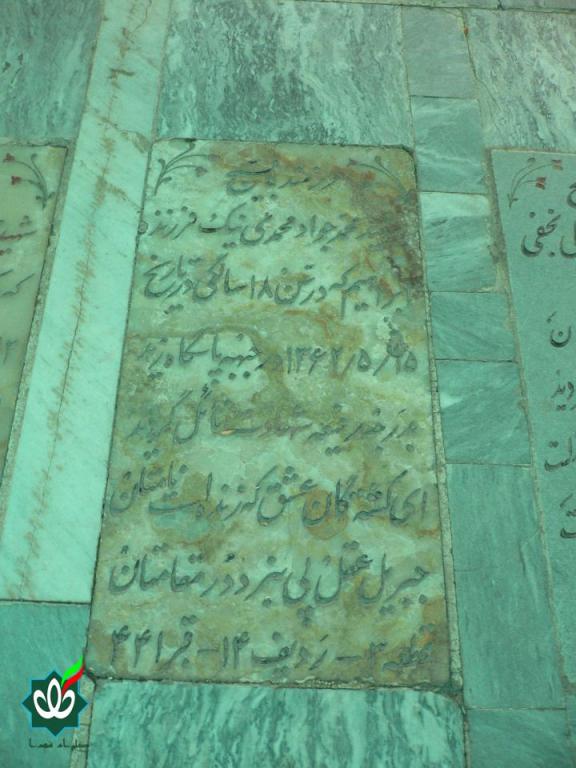 رزمنده بسیج
محمد جواد محمدی نیک فرزند
ابراهیم که در سن ۱۸ سالگی در تاریخ
۱۵/۵/۱۳۶۲ در جبهه پاسگاه زید
بدرجه رفیعه شهادت نائل گردید
ای کشته گان عشق که زنده است نامتان
جبریل عقل پی نبرد در مقامتان
قطعه ۳ - ردیف ۱۴ - قبر ۴۴۱
نجفی